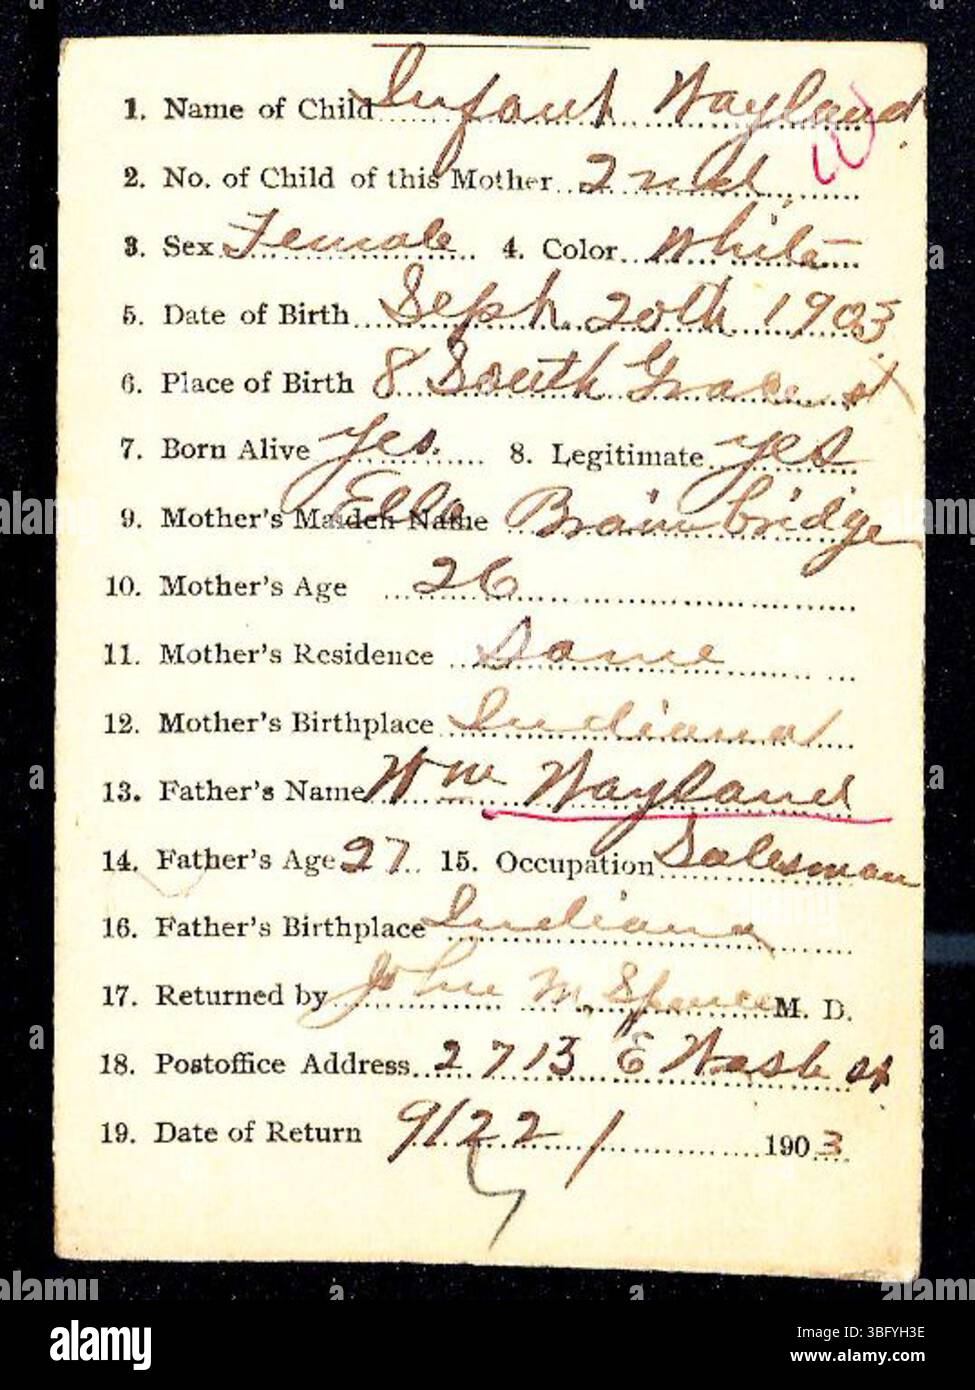 1. Name of Child Infant Wayland
2. No. of Child of this Mother 2nd
3. Sex Female 4. Color White
5. Date of Birth Sept. 20th 1903
6. Place of Birth 8 South Grace st
7. Born Alive yes. 8. Legitimate yes
9. Mother's Maiden Name Ella Brainbridge
10. Mother's Age 26
11. Mother's Residence Same
12. Mother's Birthplace Indiana
13. Father's Name Wm Wayland
14. Father's Age 27 15. Occupation Salesman
16. Father's Birthplace Indiana
17. Returned by John M. Spence M. D.
18. Postoffice Address 2713 E Wash st
19. Date of Return 9/22/ 1903
alamy
Image ID: 3BFYH3E
www.alamy.com